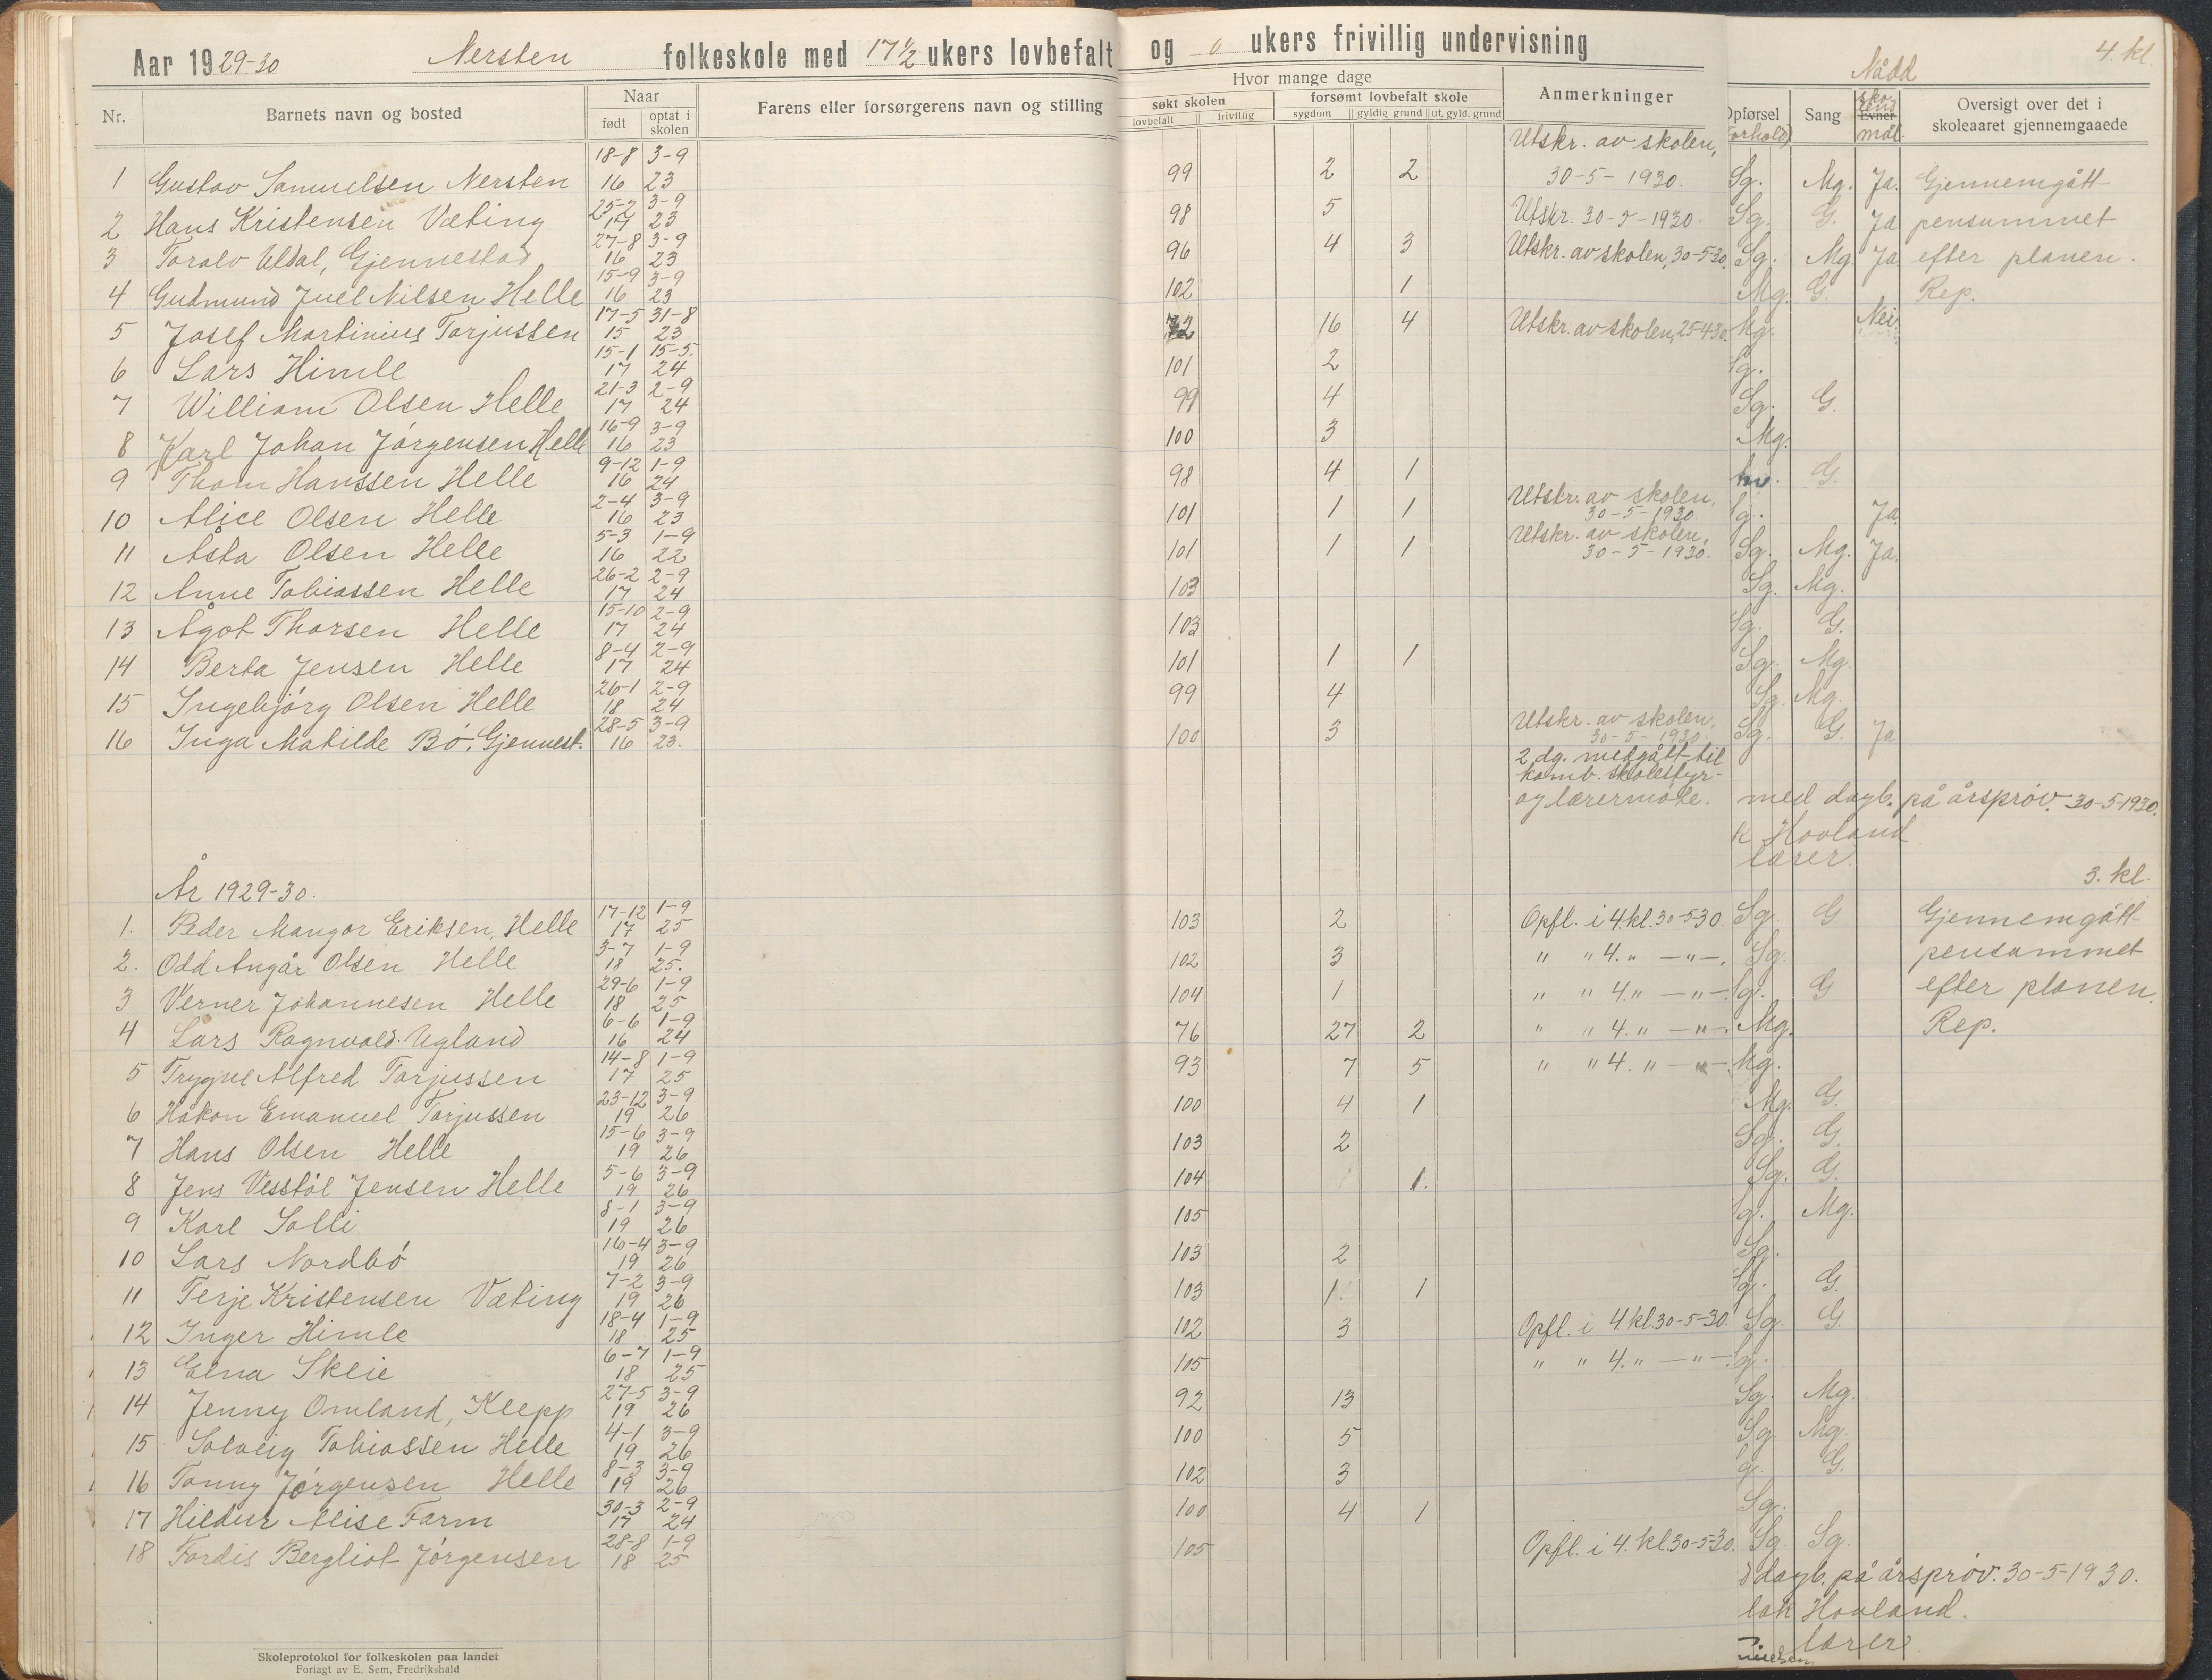 Aar 1929-30 Nersten folkeskole med 17 1/2 ukers lovbefalt og 0 ukers frivillig undervisning
4. kl.
Nådd
Nr. Barnets navn og bosted Naar født optat i skolen Farens eller forsørgerens navn og stilling Hvor mange dage søkt skolen lovbefalt frivillig forsømt lovbefalt skole sygdom gyldig grund ut. gyld. grund Anmerkninger Opførsel (Forhold) Sang Evner skolens mål. Oversigt over det i skoleaaret gjennemgaaede
1 Gustav Samuelsen Nersten 18-8 16 3-9 23 99 2 2 Utskr. av skolen, 30-5-1930. Sg. Mg. Ja. Gjennemgått
2 Hans Kristensen Væting 25-2 17 3-9 23 98 5 Utskr. 30-5-1930. Sg. G. Ja pensummet
3 Toralv Uldal, Gjennestad 27-8 16 3-9 23 96 4 3 Utskr. av skolen, 30-5-30. Sg. Mg. Ja efter planen.
4 Gudmund Juel Nilsen Helle 15-9 16 3-9 23 102 1 Mg. G. Rep.
5 Josef Martinius Torjussen 17-5 15 31-8 23 72 16 4 Utskr. av skolen, 25-4-30. Mg. Nei
6 Lars Himle 15-1 17 15-5. 24 101 2 Sg.
7 William Olsen Helle 21-3 17 2-9 24 99 4 Sg. G.
8 Karl Johan Jörgensen Helle 16-9 16 3-9 23 100 3 Mg.
9 Thom Hanssen Helle 9-12 16 1-9 24 98 4 1 G.
10 Alice Olsen Helle 2-4 16 3-9 23 101 1 1 Utskr. av skolen, 30-5-1930. Sg. Ja
11 Åsta Olsen Helle 5-3 16 1-9 22 101 1 1 Utskr. av skolen, 30-5-1930. Sg. Mg. Ja.
12 Anne Tobiassen Helle 26-2 17 2-9 24 103 Sg. Mg.
13 Ågot Thorsen Helle 15-10 17 2-9 24 103 Sg. G.
14 Berta Jensen Helle 8-4 17 2-9 24 101 1 1 Sg. Mg.
15 Ingebjörg Olsen Helle 26-1 18 2-9 24 99 4 Sg. Mg.
16 Inga Matilde Bö, Gjennest. 28-5 16 3-9 23. 100 3 Utskr. av skolen, 30-5-1930. Sg. G. Ja
2 dg. medgått til
komb. skolestyr-
og lærermöte. med dagb. på årspröv. 30-5-1930.
k Hovland
lærer.
3. kl.
År 1929-30.
1. Peder Mangor Eriksen, Helle 17-12 17 1-9 25 103 2 Opfl. i 4. kl. 30-5-30. Sg. G Gjennemgått
2. Odd Angår Olsen Helle 3-7 18 1-9 25. 102 3 " " 4. " —"—. Sg. pensummet
3 Verner Johannesen Helle 29-6 18 1-9 25 104 1 " " 4. " —"—. Sg. G efter planen.
4 Lars Ragnvald Ugland 6-6 16 1-9 24 76 27 2 " " 4. " —"—. Mg. Rep.
5 Trygve Alfred Torjussen 14-8 17 1-9 25 93 7 5 " " 4. " —"—. Mg.
6 Håkon Emanuel Torjussen 23-12 19 3-9 26 100 4 1 Mg. G.
7 Hans Olsen Helle 15-6 19 3-9 26 103 2 Sg. G.
8 Jens Vesstöl Jensen Helle 5-6 19 3-9 26 104 1. Sg. G.
9 Kare Solli 8-1 19 3-9 26 105 Sg. Mg.
10 Lars Nordbö 16-4 19 3-9 26 103 2 Sg.
11 Terje Kristensen Væting 7-2 19 3-9 26 103 1 1 Sg. G.
12 Inger Himle 18-4 18 1-9 25 102 3 Opfl. i 4. kl. 30-5-30. Sg. G.
13 Elna Skeie 6-7 18 1-9 25 105 " " 4. " —"—. Sg.
14 Jenny Omland, Klepp 27-5 19 3-9 26 92 13 Sg. Mg.
15 Solveig Tobiassen Helle 4-1 19 3-9 26 100 5 Sg. Mg.
16 Tonny Jörgensen Helle 8-3 19 3-9 26 102 3 g. G.
17 Hildur Alise Farm 30-3 17 2-9 24 100 4 1 Sg.
18 Tordis Bergliot Jörgensen 28-8 18 1-9 25 105 Opfl. i 4. kl. 30-5-30. Sg. Sg.
d dagb. på årspröv. 30-5-1930.
lak Hovland.
lærer
Skoleprotokol for folkeskolen paa landet
Forlagt av E. Sem, Fredrikshald